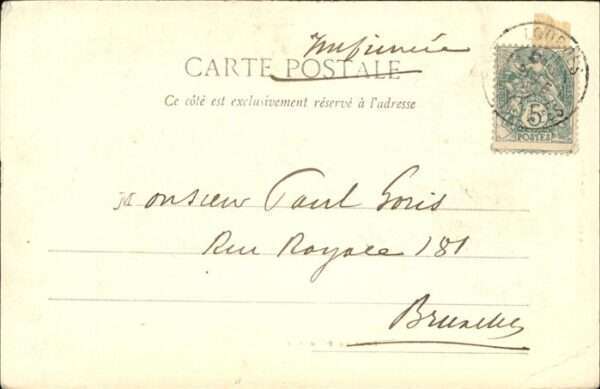 Imprimée
CARTE POSTALE
Ce côté est exclusivement réservé à l'adresse
LOURDES
5
POSTES
Monsieur Paul Goris
Rue Royale 181
Bruxelles